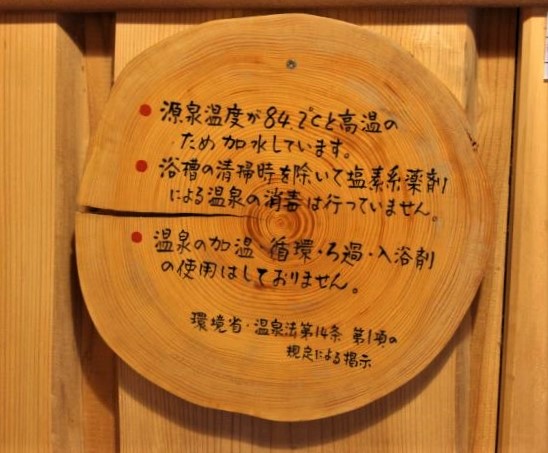 源泉温度が84.2℃と高温の
ため加水しています。
浴槽の清掃時を除いて塩素系薬剤
による温泉の消毒は行っていません。
温泉の加温 循環・ろ過・入浴剤
の使用はしておりません。
環境省・温泉法第14条 第1項の
規定による掲示